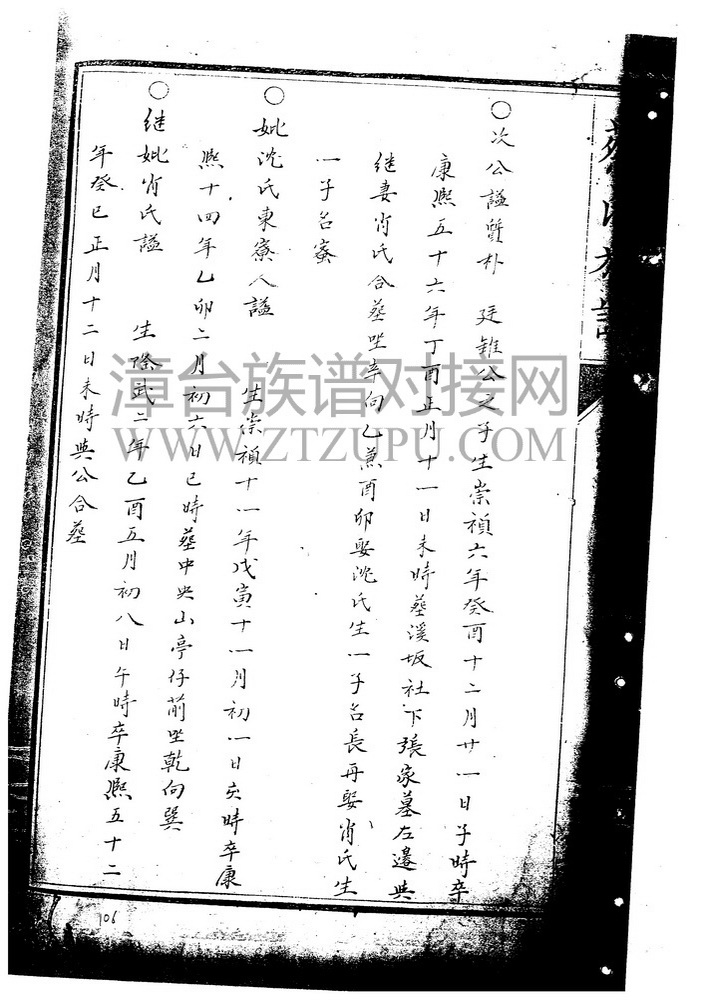 ○次公謚質朴 廷錐公之子生崇禎六年癸酉十二月廿一日子時卒
康熙五十六年丁酉正月十一日未時葬溪坂社下張家墓左邊與
继妻肖氏合葬坐辛向乙兼酉卯娶沈氏生一子名長再娶肖氏生
一子名蜜
○妣沈氏東寮人謚 生崇禎十一年戊寅十一月初一日亥時卒康
熙十四年乙卯二月初六日巳時葬中央山亭仔前坐乾向巽
○继妣肖氏謚 生隆武二年乙酉五月初八日午時卒康熙五十二
年癸巳正月十二日未時與公合葬
106
漳台族谱对接网
WWW.ZTZUPU.COM